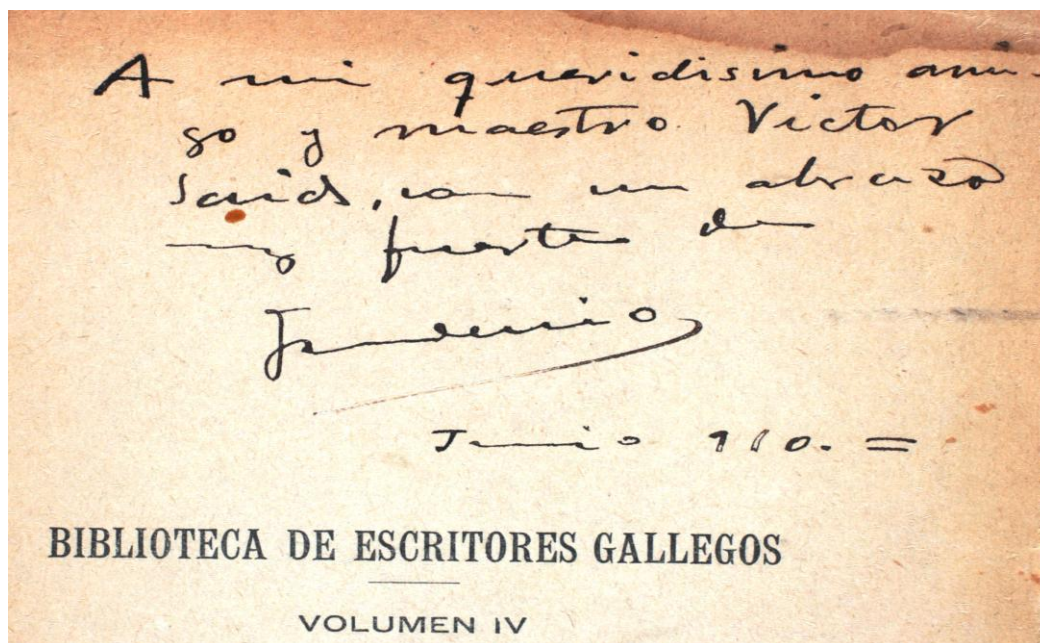 A mi queridisimo ami-
go y maestro Victor
Said, con un abrazo
muy fuerte de
Junio 910. =
BIBLIOTECA DE ESCRITORES GALLEGOS
VOLUMEN IV